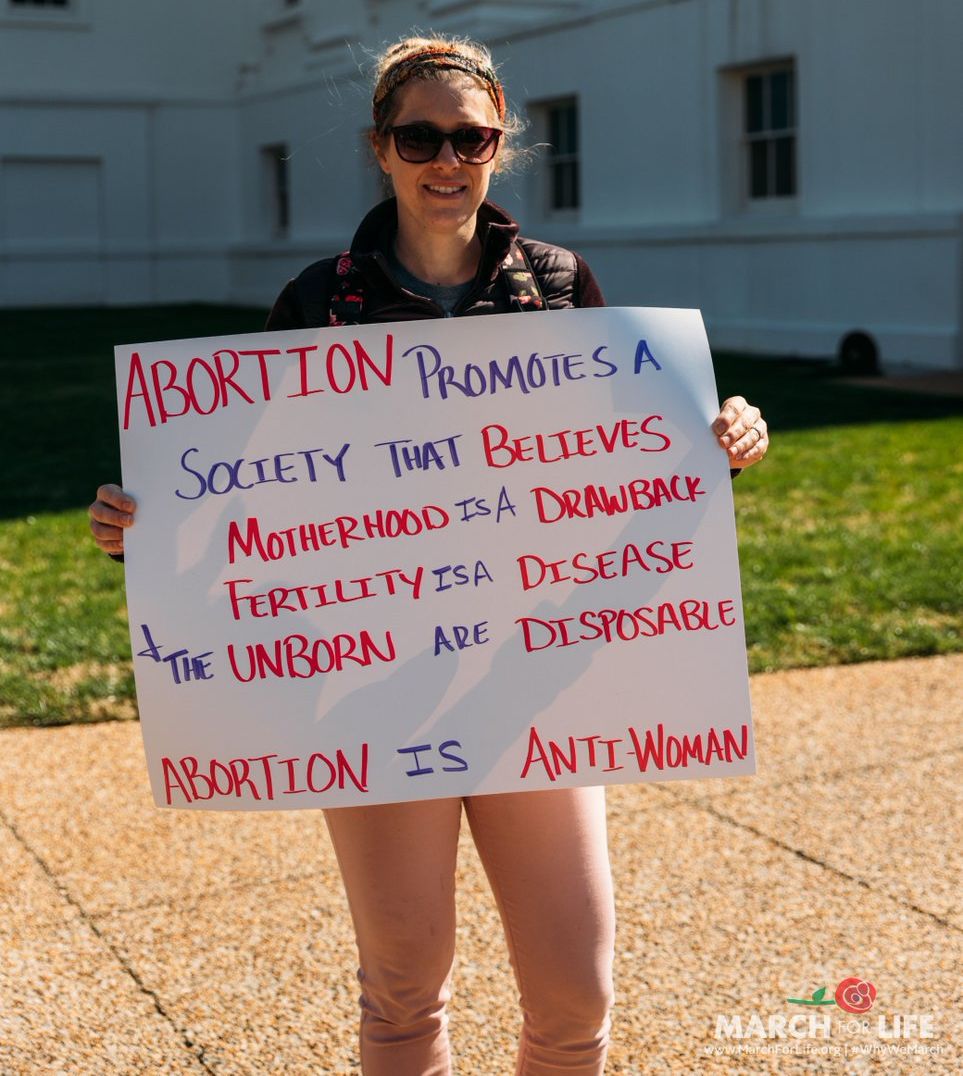 ABORTION PROMOTES A
SOCIETY THAT BELIEVES
MOTHERHOOD IS A DRAWBACK
FERTILITY IS A DISEASE
+ THE UNBORN ARE DISPOSABLE
ABORTION IS ANTI-WOMAN
MARCH FOR LIFE
www.MarchForLife.org | #WhyWeMarch